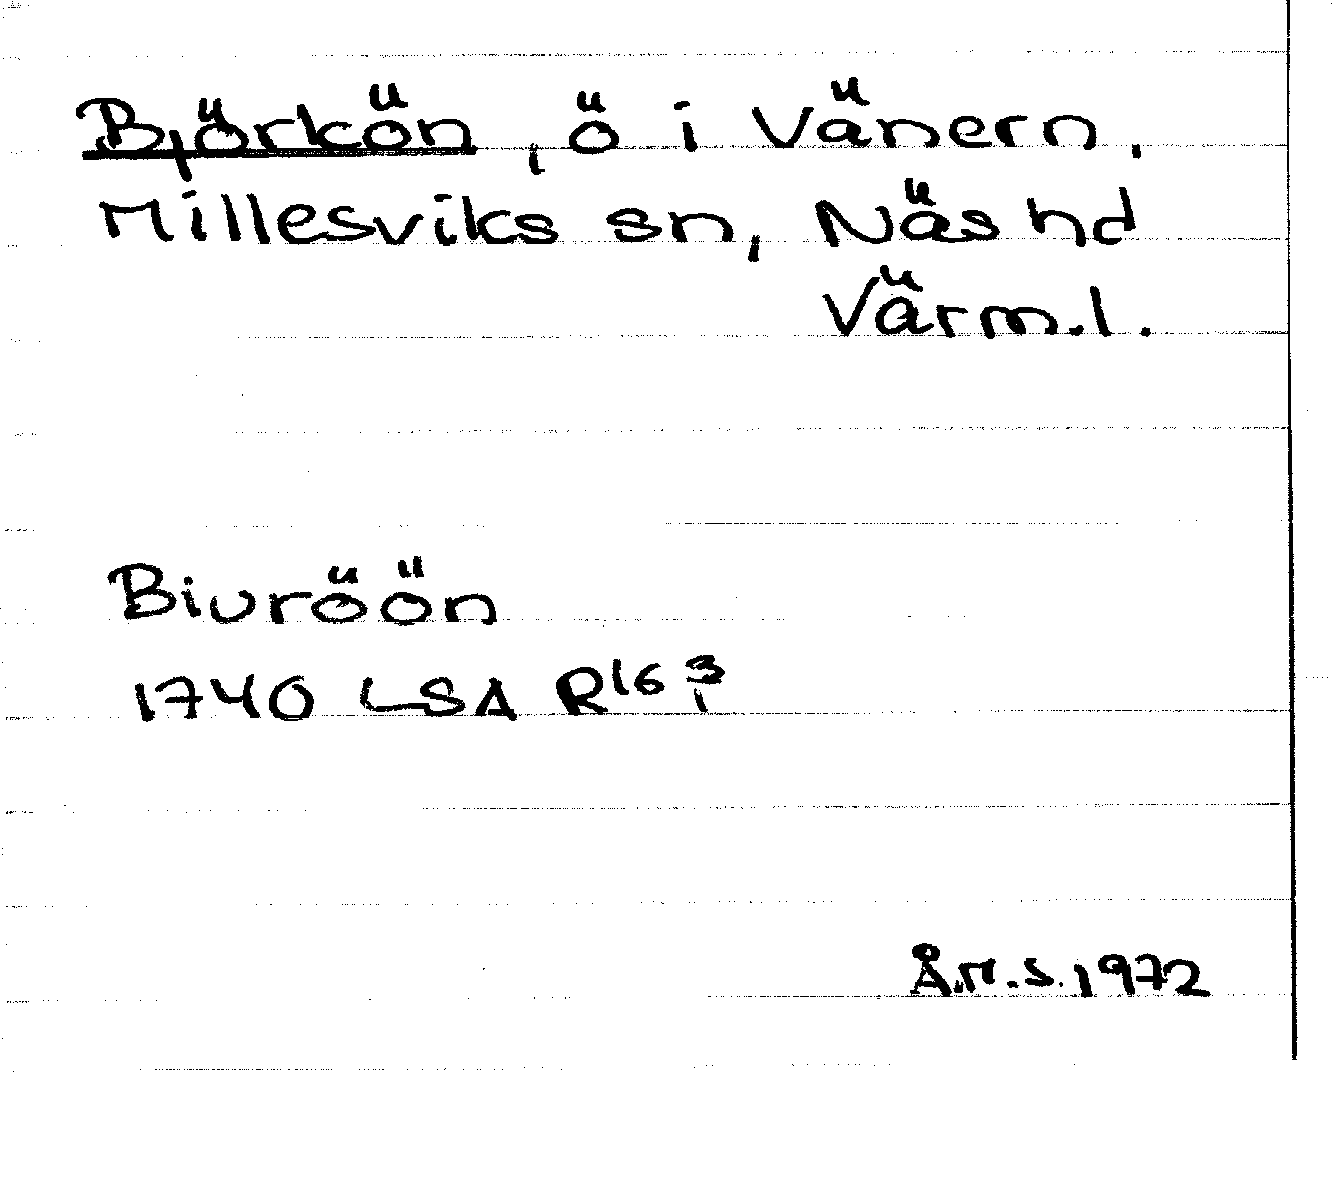 Björkön, ö i Vänern,
Millesviks sn, Näs hd
Värm.l.
Biuröön
1740 LSA R16 3/1
Å.M.S. 1972